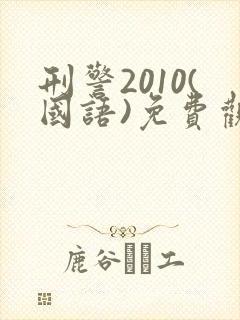 刑警2010(
國語)免費觀
鹿谷 工